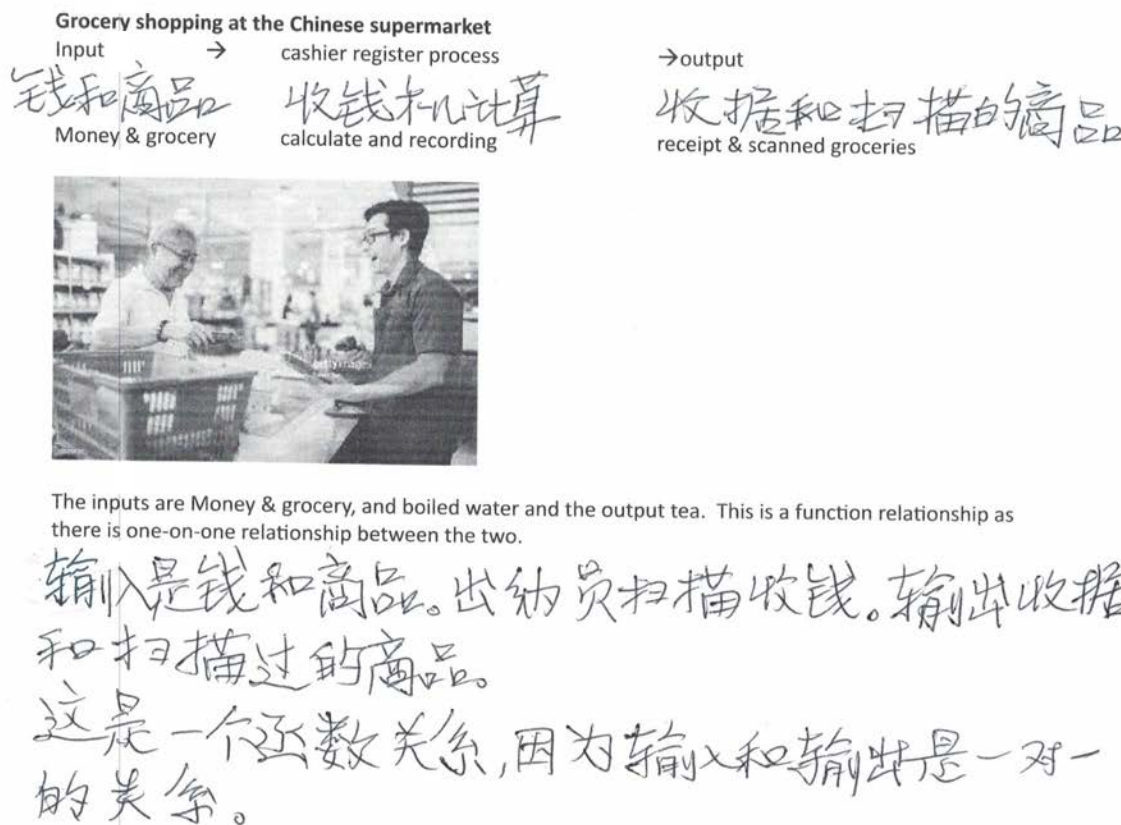 Grocery shopping at the Chinese supermarket
Input → cashier register process →output
钱和商品 收钱机计算 收据和扫描的商品
Money & grocery calculate and recording receipt & scanned groceries
gettyimages
The inputs are Money & grocery, and boiled water and the output tea. This is a function relationship as
there is one-on-one relationship between the two.
输入是钱和商品。出纳员扫描收钱。输出收据
和扫描过的商品。
这是一个函数关系,因为输入和输出是一对一
的关系。